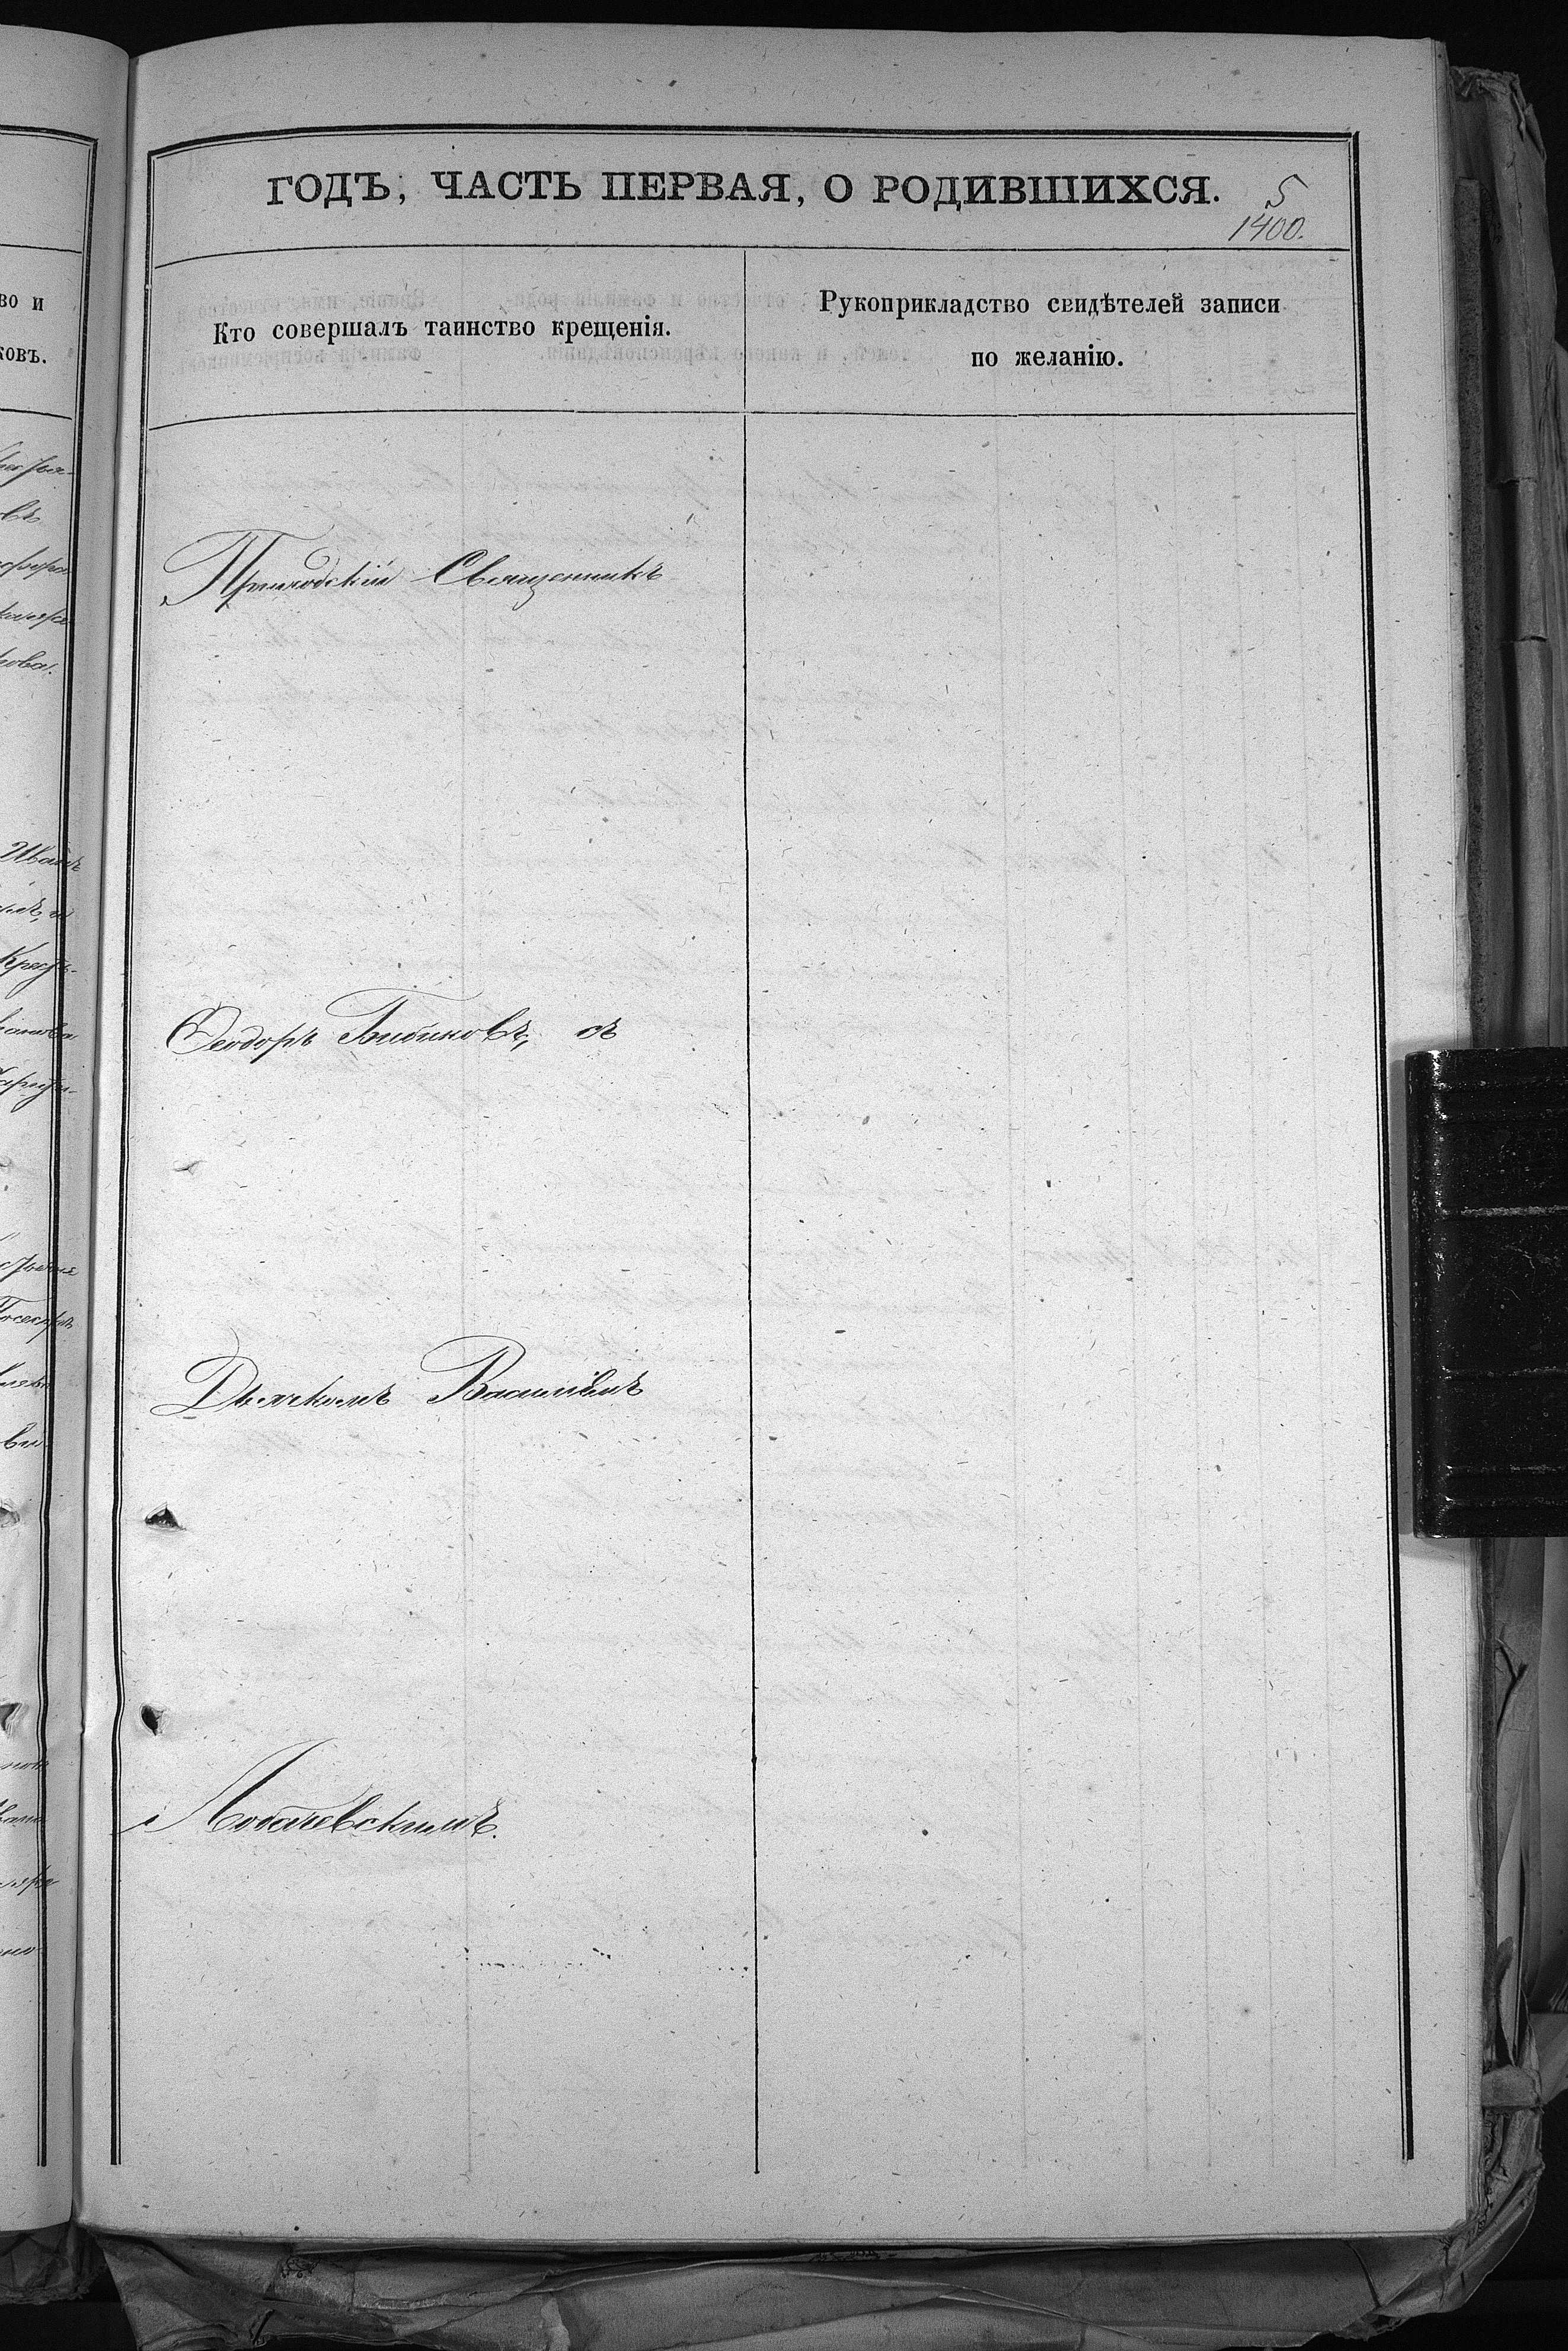 ГОДЪ, ЧАСТЬ ПЕРВАЯ, О РОДИВШИХСЯ.
5
1400.
во и
ковъ.
Кто совершалъ таинство крещенія.
Рукоприкладство свидѣтелей записи
по желанію.
Приходскій Священникъ
Ѳеодоръ Бибиковъ, съ
Дьячкомъ Василіемъ
Лобачевскимъ.